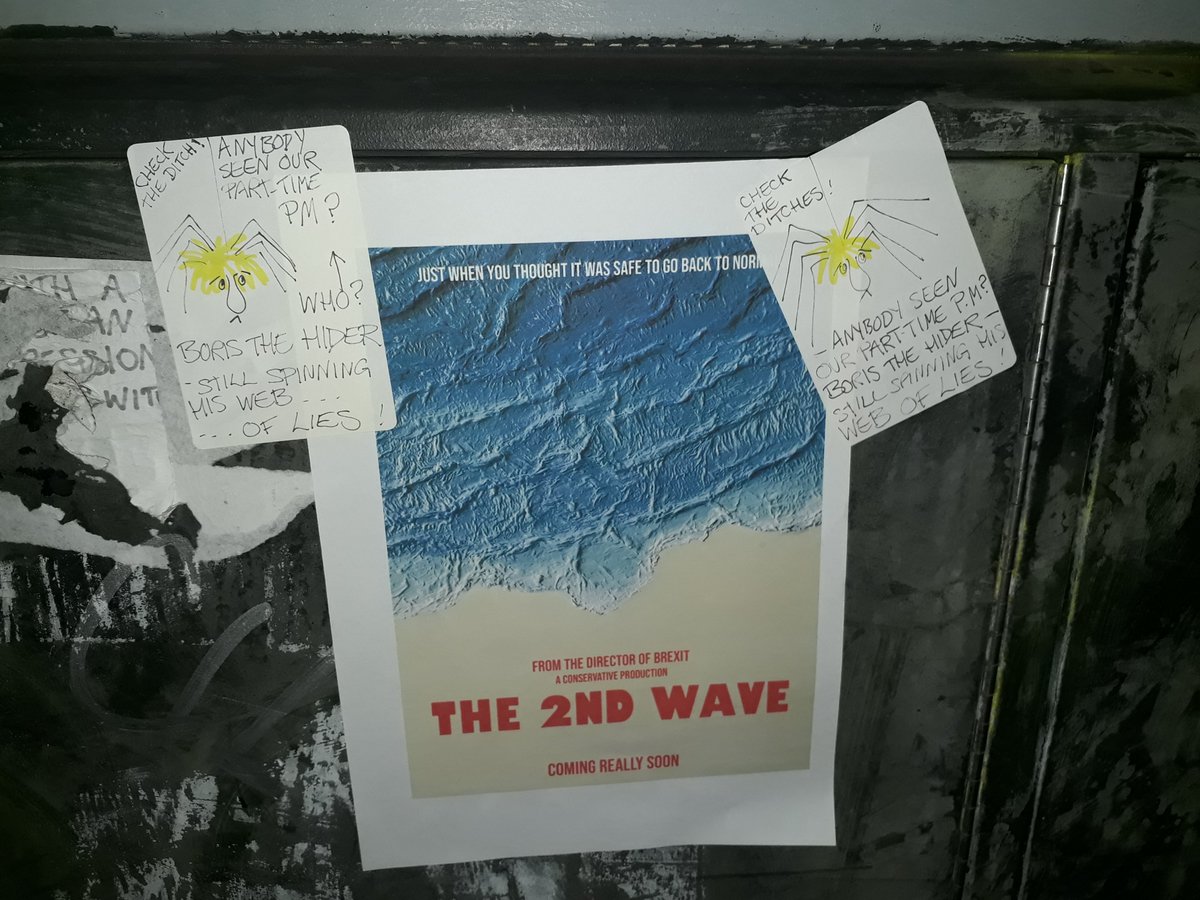 CHECK
THE DITCH!
ANYBODY
SEEN OUR
PART-TIME
PM?
WHO?
BORIS THE HIDER
- STILL SPINNING
HIS WEB ....
.... OF LIES!
CHECK
THE
DITCHES!
- ANYBODY SEEN
OUR PART-TIME P.M?
BORIS THE HIDER -
STILL SPINNING HIS
WEB OF LIES!
TH A
AN
ESSION
WIT
JUST WHEN YOU THOUGHT IT WAS SAFE TO GO BACK TO NOR
FROM THE DIRECTOR OF BREXIT
A CONSERVATIVE PRODUCTION
THE 2ND WAVE
COMING REALLY SOON